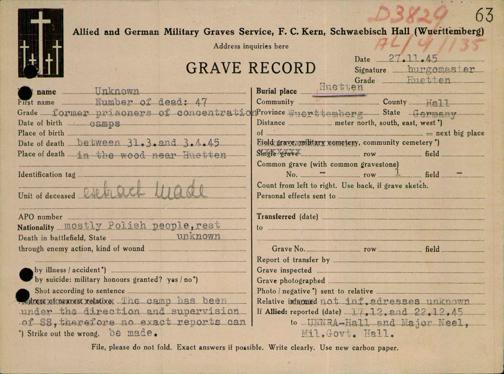 D3829
AL/9/135
63
Allied and German Military Graves Service, F. C. Kern, Schwaebisch Hall (Wuerttemberg)
Address inquiries here
GRAVE RECORD
Date 27.11.45
Signature burgomaster
Grade Huetten
name Unknown
First name Number of dead: 47
Grade former prisoners of concentration
Date of birth camps
Place of birth
Date of death between 31.3.and 3.4.45
Place of death in the wood near Huetten
Identification tag
Unit of deceased extract made
APO number
Nationality mostly Polish people,rest
Death in battlefield, State unknown
through enemy action, kind of wound
by illness / accident*)
by suicide: military honours granted? yes / no*)
Shot according to sentence
Address of nearest relative The camp has been
under the direction and supervision
of SS,therefore no exact reports can
*) Strike out the wrong. be made.
Burial place Huetten
Community County Hall
Province Wuerttemberg State Germany
Distance meter north, south, east, west*)
of = next big place
Field grave, military cemetery, community cemetery*)
Single grave row field
Common grave (with common gravestone)
No. - row 1 field -
Count from left to right. Use back, if grave sketch.
Personal effects sent to
Transferred (date)
to
Grave No. row field
Report of transfer by
Grave inspected
Grave photographed
Photo / negative*) sent to relative
Relative informed not inf.adresses unknown
If Allied: reported (date) 17.12.and 22.12.45
to UNNRA-Hall and Major Neel,
Mil.Govt. Hall.
File, please do not fold. Exact answers if possible. Write clearly. Use new carbon paper.